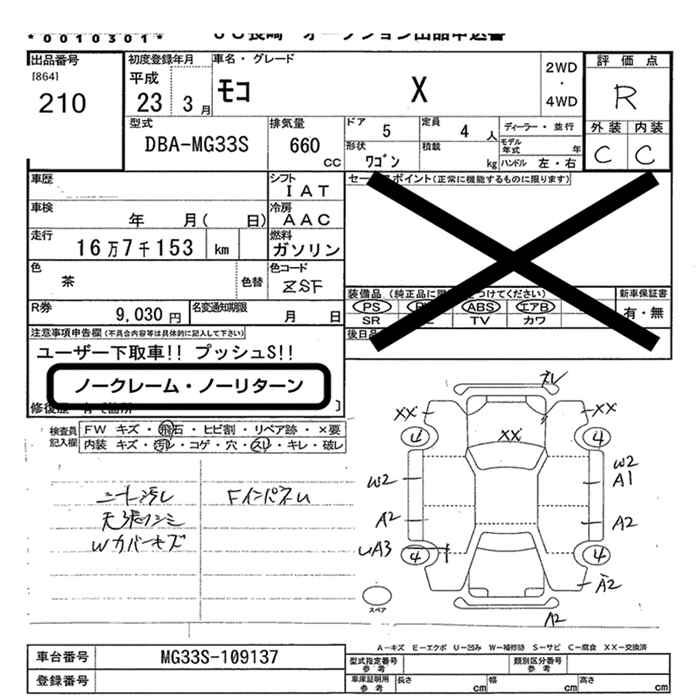 *0010301*
出品番号
[864]
210
初度登録年月
平成
23 3月
車名・グレード
モコ X
2WD
・
4WD
評価点
R
外装 内装
C C
型式
DBA-MG33S
排気量
660
cc
ドア 5
定員 4 人
ディーラー・並行
形状 ワゴン
積載 kg
モデル年式 年
ハンドル 左・右
車歴
シフト
IAT
車検 年 月( 日)
冷房
AAC
走行 16万7千153 km
燃料
ガソリン
色 茶
色替
色コード
ZSF
R券 9,030円
名変通知期限 月 日
注意事項申告欄(不具合内容等は具体的に記入して下さい)
ユーザー下取車!! プッシュS!!
ノークレーム・ノーリターン
新車保証書
有・無
PS ABS エアB
SR TV カワ
検査員記入欄
FW キズ・飛石・ヒビ割・リペア跡・×要
内装 キズ・汚レ・コゲ・穴・スリ・キレ・破レ
シート汚レ Fインパネ
Wカバーキズ
XX XX
XX
4 4
W2 W2
A1
A2 A2
A3
4 4
A2
スペア
A2
A-キズ E-エクボ U-凹み W-補修跡 S-サビ C-腐食 XX-交換済
車台番号 MG33S-109137
登録番号
型式指定番号参考
類別区分番号参考
車庫証明用参考 長さ cm 幅 cm 高さ cm